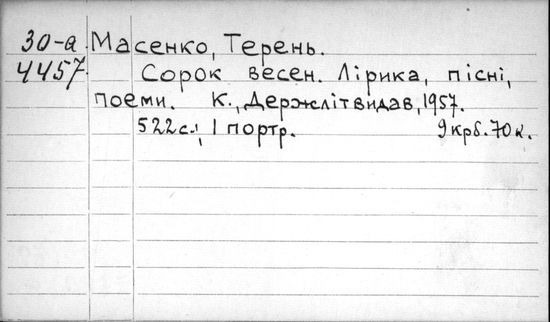 30-а Масенко, Терень.
4457. Сорок весен. Лірика, пісні,
поеми. К., Держлітвидав, 1957.
522 с., 1 портр. 9 крб. 70 к.